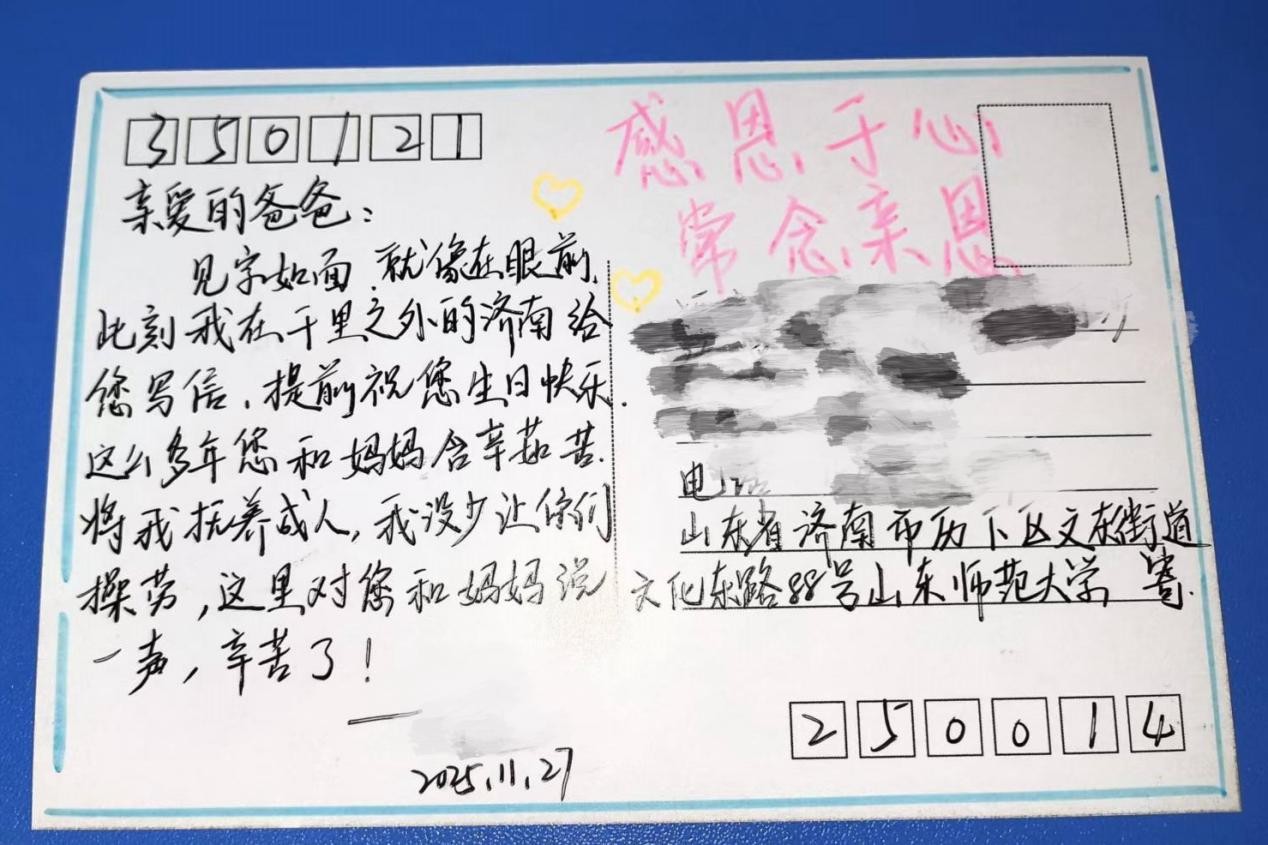 350121
亲爱的爸爸：
见字如面，就像在眼前，
此刻我在千里之外的济南给
您写信，提前祝您生日快乐．
这么多年您和妈妈含辛茹苦．
将我抚养成人，我没少让你们
操劳，这里对您和妈妈说
一声，辛苦了！
—
2025.11.27
感恩于心
常念亲恩
电
山东省济南市历下区文东街道
文化东路88号山东师范大学 寄．
250014